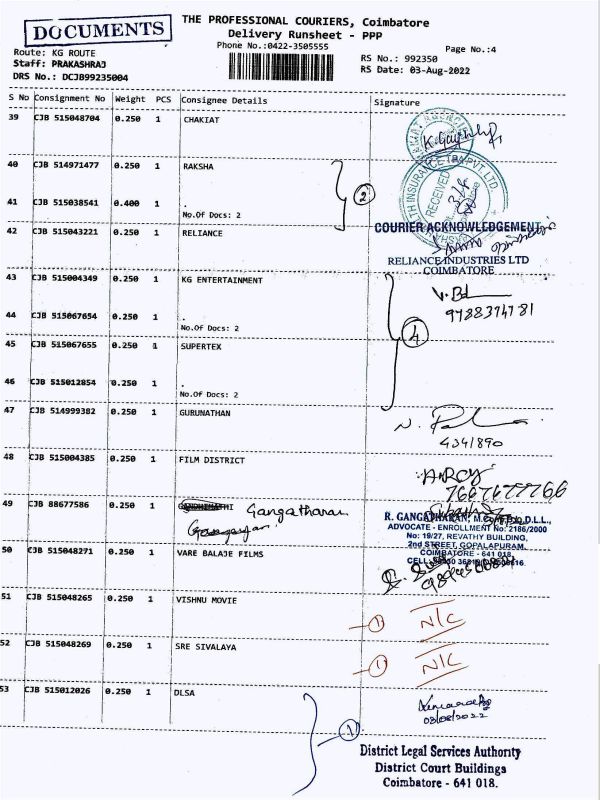 DOCUMENTS
THE PROFESSIONAL COURIERS, Coimbatore
Delivery Runsheet - PPP
Phone No.:0422-3505555
Page No.:4
Route: KG ROUTE
Staff: PRAKASHRAJ
DRS No.: DCJB99235004
RS No.: 992350
RS Date: 03-Aug-2022
S No Consignment No Weight PCS Consignee Details Signature
39 CJB 515048704 0.250 1 CHAKIAT
40 CJB 514971477 0.250 1 RAKSHA
41 CJB 515038541 0.400 1 .
No.Of Docs: 2
2
RECEIVED
42 CJB 515043221 0.250 1 RELIANCE
COURIER ACKNOWLEDGEMENT
RELIANCE INDUSTRIES LTD
COIMBATORE
43 CJB 515004349 0.250 1 KG ENTERTAINMENT
44 CJB 515067654 0.250 1 .
No.Of Docs: 2
4
45 CJB 515067655 0.250 1 SUPERTEX
46 CJB 515012854 0.250 1 .
No.Of Docs: 2
47 CJB 514999382 0.250 1 GURUNATHAN
48 CJB 515004385 0.250 1 FILM DISTRICT
49 CJB 88677586 0.250 1 Gangatharan
R. GANGATHARAN,
ADVOCATE - ENROLLMENT No: 2186/2000
No: 19/27, REVATHY BUILDING,
2nd STREET, GOPALAPURAM,
COIMBATORE - 641 018.
50 CJB 515048271 0.250 1 VARE BALAJE FILMS
51 CJB 515048265 0.250 1 VISHNU MOVIE
1 N/C
52 CJB 515048269 0.250 1 SRE SIVALAYA
1 N/C
53 CJB 515012026 0.250 1 DLSA
03/08/2022
1
District Legal Services Authority
District Court Buildings
Coimbatore - 641 018.